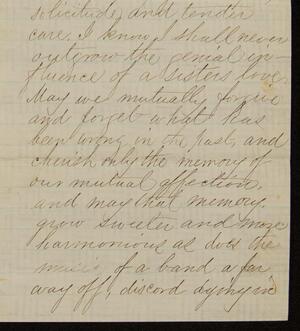 solicitude, and tender
care. I know I shall never
outgrow the genial in-
fluence of a sisters love.
May we mutually forgive
and forget what has
been wrong in the past, and
cherish only the memory of
our mutual affection,
and may that memory
grow sweeter and more
harmonious as does the
music of a band a far
way off, discord dying in